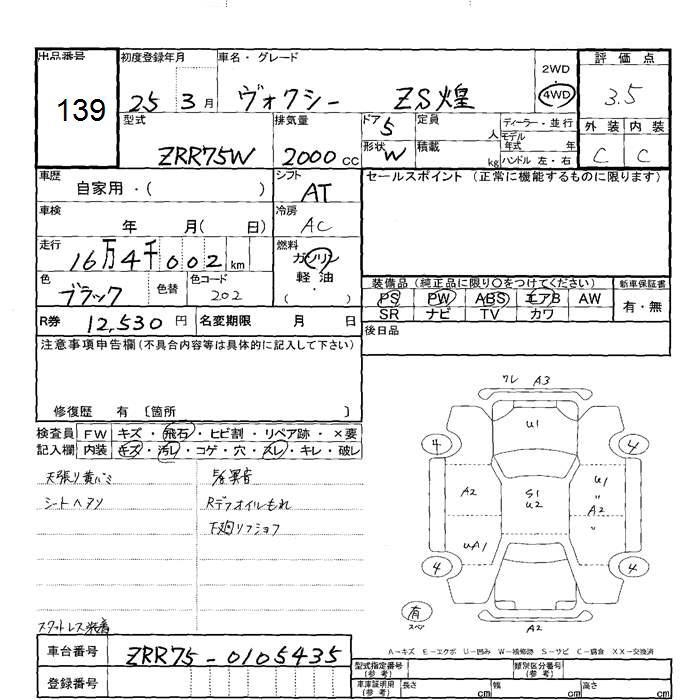 出品番号 初度登録年月 車名・グレード 2WD 4WD 評価点
139 25 3月 ヴォクシー ZS煌 3.5
外装 内装
C C
型式 排気量 ドア 定員 人 ディーラー・並行
ZRR75W 2000 CC 5 モデル年式 年
形状 W 積載 kg ハンドル 左・右
車歴 自家用・( ) シフト AT
セールスポイント (正常に機能するものに限ります)
車検 年 月( 日) 冷房 AC
走行 16万4千002 km 燃料 ガソリン 軽油 ( ・ )
色 ブラック 色替 色コード 202
装備品 (純正品に限り〇をつけてください) 新車保証書
PS PW ABS エアB AW 有・無
SR ナビ TV カワ
R券 12,530 円 名変期限 月 日
後日品
注意事項申告欄(不具合内容等は具体的に記入して下さい)
修復歴 有 〔箇所 〕
検査員 FW キズ・飛石・ヒビ割・リペア跡・×要
記入欄 内装 キズ・汚レ・コゲ・穴・スレ・キレ・破レ
天張り黄バミ
シートヘタリ
異音
Rデフオイルもれ
スタットレス装着
ワレ A3
U1
4 4
A2 S1 U2 U1 〃 A2 〃
UA1
4 4
有
スペア
A2
A-キズ E-エクボ U-凹み W-補修跡 S-サビ C-腐食 XX-交換済
車台番号 ZRR75-0105435
登録番号
型式指定番号 (参考) 類別区分番号 (参考)
車庫証明用 (参考) 長さ cm 幅 cm 高さ cm